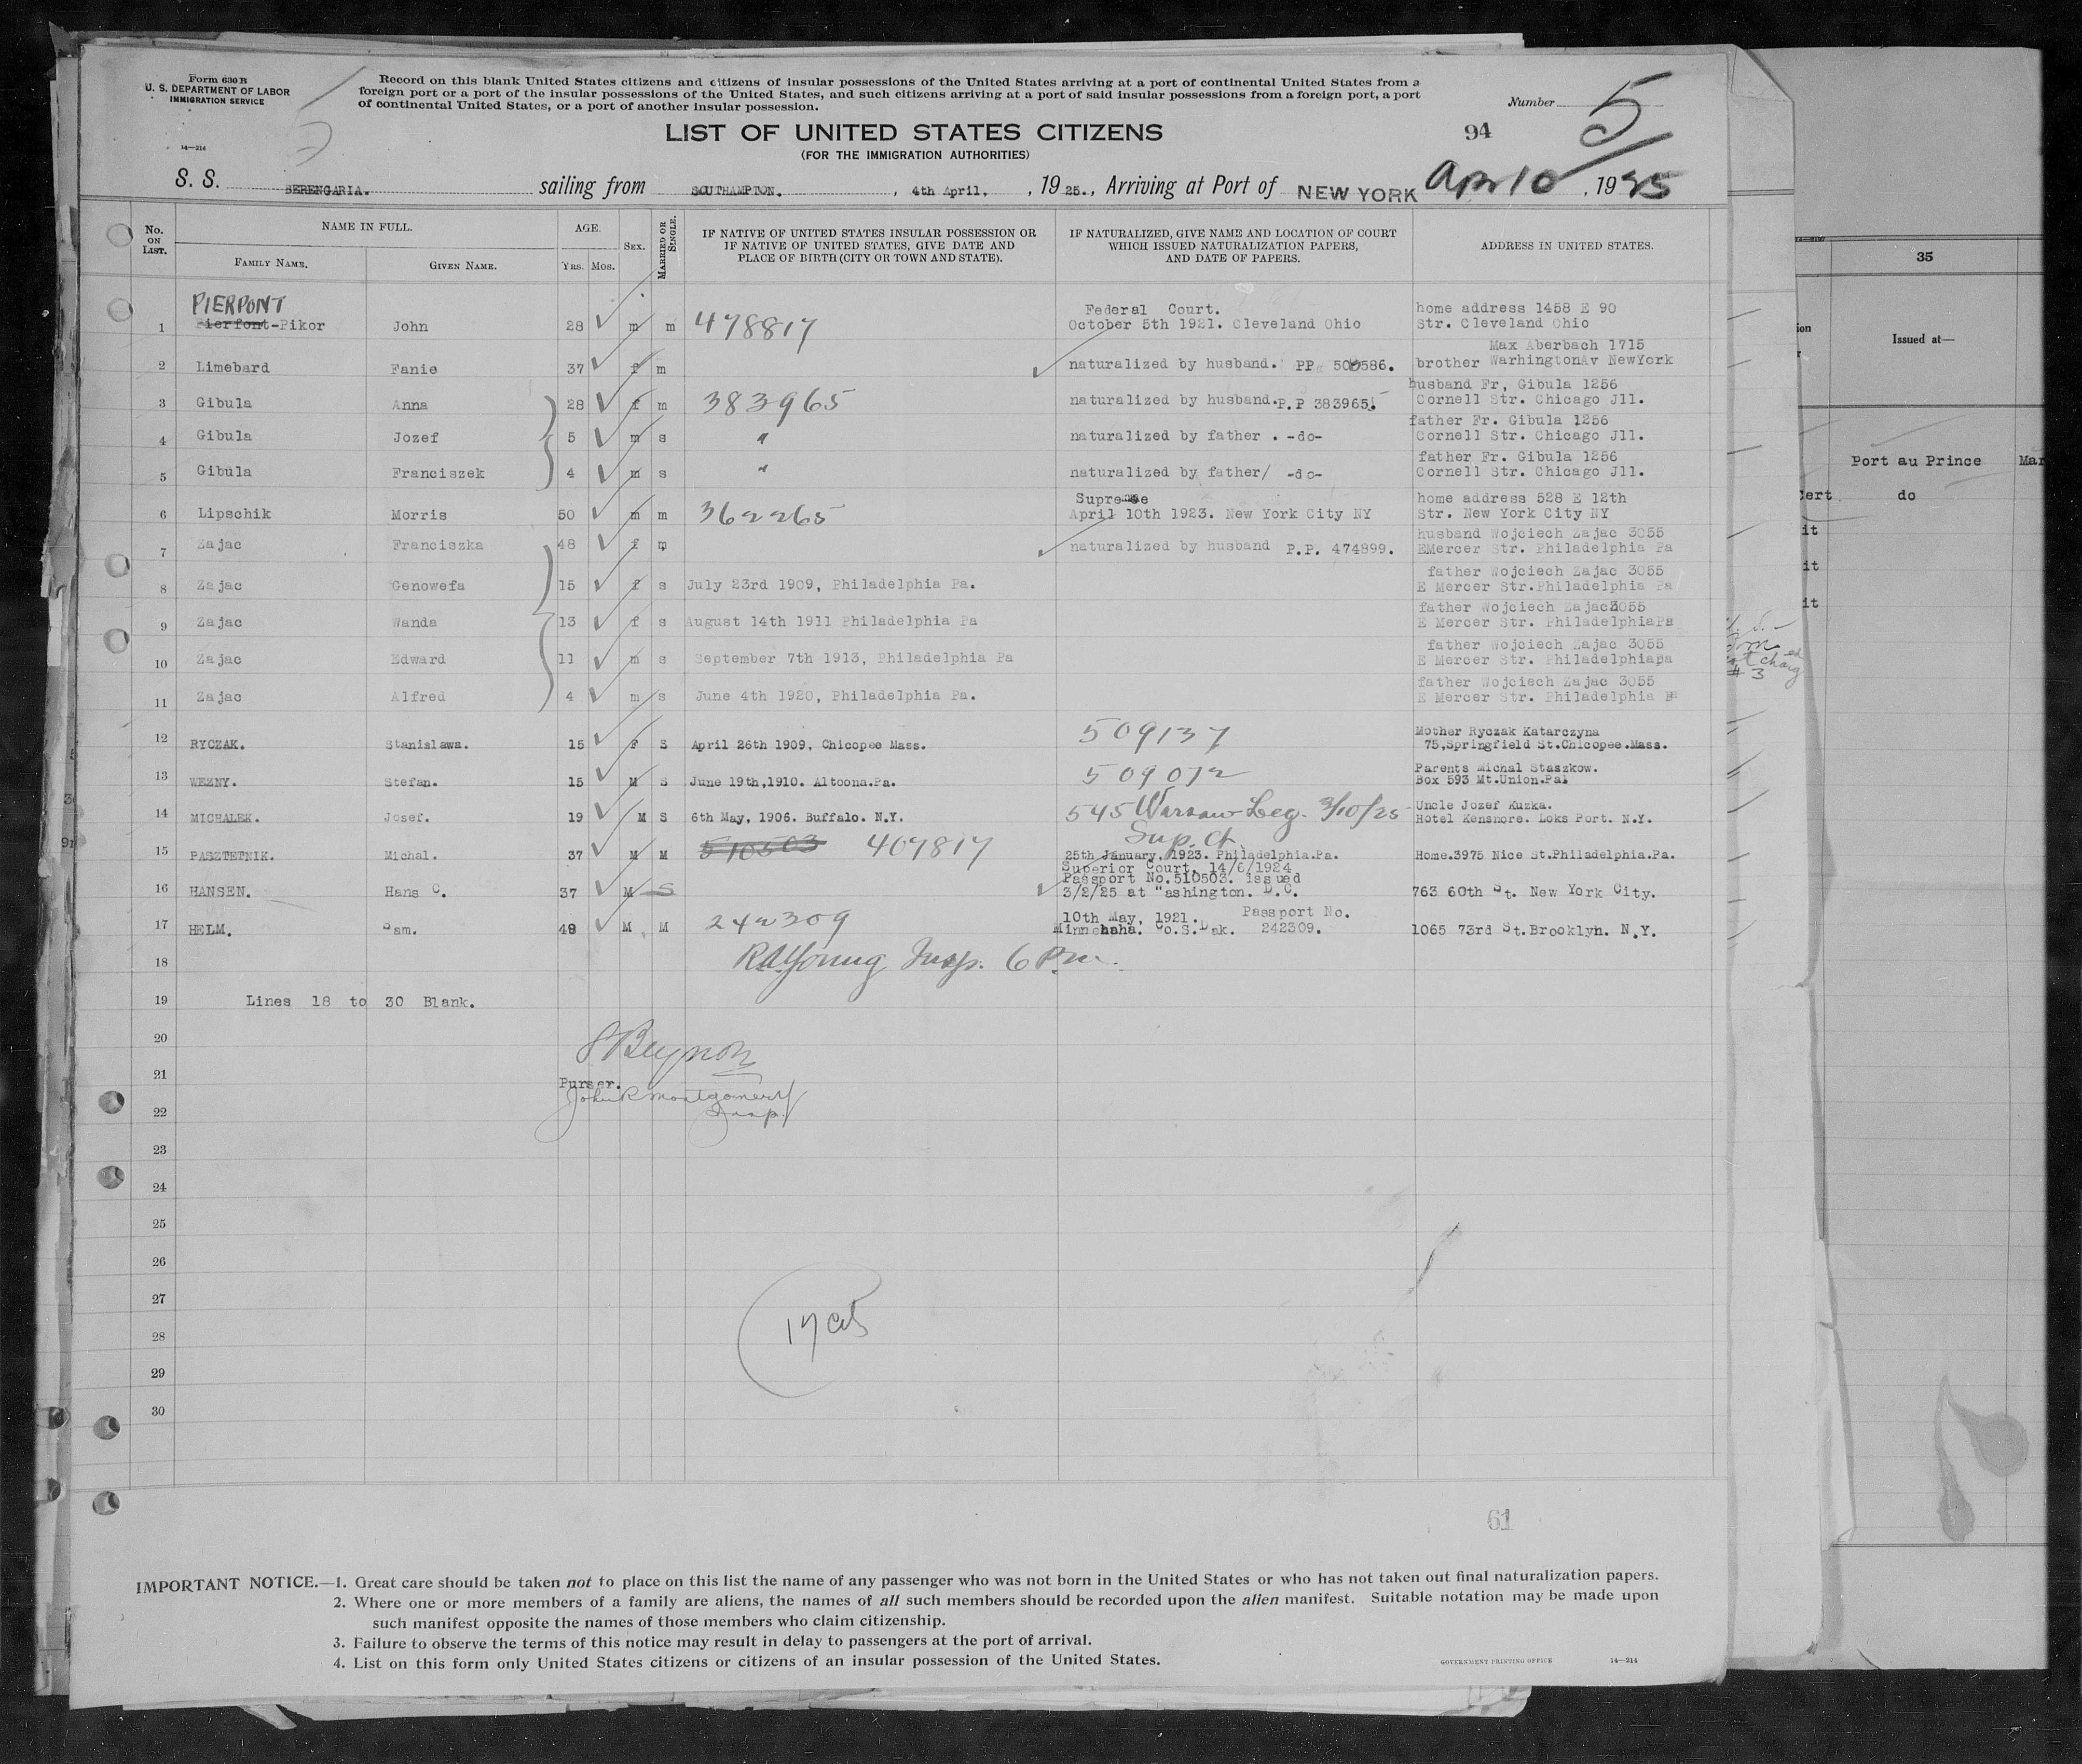 Form 630 B
U. S. DEPARTMENT OF LABOR
IMMIGRATION SERVICE
14—214
Record on this blank United States citizens and citizens of insular possessions of the United States arriving at a port of continental United States from a
foreign port or a port of the insular possessions of the United States, and such citizens arriving at a port of said insular possessions from a foreign port, a port
of continental United States, or a port of another insular possession.
Number 5
LIST OF UNITED STATES CITIZENS
94
(FOR THE IMMIGRATION AUTHORITIES)
S. S. BERENGARIA. sailing from SOUTHAMPTON. , 4th April. , 19 25. , Arriving at Port of NEW YORK Apr 10 , 1925
No. ON LIST.
NAME IN FULL.
FAMILY NAME.
GIVEN NAME.
AGE.
YRS. MOS.
SEX.
MARRIED OR SINGLE.
IF NATIVE OF UNITED STATES INSULAR POSSESSION OR
IF NATIVE OF UNITED STATES, GIVE DATE AND
PLACE OF BIRTH (CITY OR TOWN AND STATE).
IF NATURALIZED, GIVE NAME AND LOCATION OF COURT
WHICH ISSUED NATURALIZATION PAPERS,
AND DATE OF PAPERS.
ADDRESS IN UNITED STATES.
PIERPONT Federal Court. home address 1458 E 90
1 Pierfont-Pikor John 28 m m 478817 October 5th 1921. Cleveland Ohio Str. Cleveland Ohio
Max Aberbach 1715
2 Limebard Fanie 37 f m naturalized by husband. PP 500586. brother WarhingtonAv NewYork
husband Fr, Gibula 1256
3 Gibula Anna 28 f m 383965 naturalized by husband.P.P 383965. Cornell Str. Chicago Jll.
father Fr. Gibula 1256
4 Gibula Jozef 5 m s " naturalized by father . -do- Cornell Str. Chicago Jll.
father Fr. Gibula 1256
5 Gibula Franciszek 4 m s " naturalized by father/ -do- Cornell Str. Chicago Jll.
Supreme home address 528 E 12th
6 Lipschik Morris 50 m m 362265 April 10th 1923. New York City NY Str. New York City NY
husband Wojciech Zajac 3055
7 Zajac Franciszka 48 f m naturalized by husband P.P. 474899. EMercer Str. Philadelphia Pa
father Wojciech Zajac 3055
8 Zajac Genowefa 15 f s July 23rd 1909, Philadelphia Pa. E Mercer Str.Philadelphia Pa
father Wojciech Zajac3055
9 Zajac Wanda 13 f s August 14th 1911 Philadelphia Pa E Mercer Str. PhiladelphiaPa
father Wojciech Zajac 3055
10 Zajac Edward 11 m s September 7th 1913, Philadelphia Pa E Mercer Str. Philadelphiapa
father Wojciech Zajac 3055
11 Zajac Alfred 4 m s June 4th 1920, Philadelphia Pa. E Mercer Str. Philadelphia Pa
Mother Ryczak Katarczyna
12 RYCZAK. Stanislawa. 15 F S April 26th 1909, Chicopee Mass. 509137 75,Springfield St.Chicopee.Mass.
Parents Michal Staszkow.
13 WEZNY. Stefan. 15 M S June 19th,1910. Altoona.Pa. 509072 Box 593 Mt.Union.Pa.
Uncle Jozef Kuzka.
14 MICHALEK. Josef. 19 M S 6th May, 1906. Buffalo. N.Y. 545 Warsaw Leg. 3/10/25 Hotel Kensnore. Loks Port. N.Y.
Sup. Ct.
15 PASZTETNIK. Michal. 37 M M 510503 407817 25th January, 1923. Philadelphia.Pa. Home.3975 Nice St.Philadelphia.Pa.
Superior Court, 14/6/1924
Passport No.510503. issued
16 HANSEN. Hans C. 37 M S 3/2/25 at "ashington. D.C. 763 60th St. New York City.
10th May, 1921. Passport No.
17 HELM. Sam. 49 M M 242309 Minnehaha. Co.S.Dak. 242309. 1065 73rd St.Brooklyn. N.Y.
18 RA Young Insp. 6 P.m.
19 Lines 18 to 30 Blank.
20
Beynon
21 Purser.
John R Montgomery
22 Insp.
23
24
25
26
27
28 17
29
30
61
IMPORTANT NOTICE.—1. Great care should be taken not to place on this list the name of any passenger who was not born in the United States or who has not taken out final naturalization papers.
2. Where one or more members of a family are aliens, the names of all such members should be recorded upon the alien manifest. Suitable notation may be made upon
such manifest opposite the names of those members who claim citizenship.
3. Failure to observe the terms of this notice may result in delay to passengers at the port of arrival.
4. List on this form only United States citizens or citizens of an insular possession of the United States.
GOVERNMENT PRINTING OFFICE 14—214
35
Issued at—
Port au Prince
do